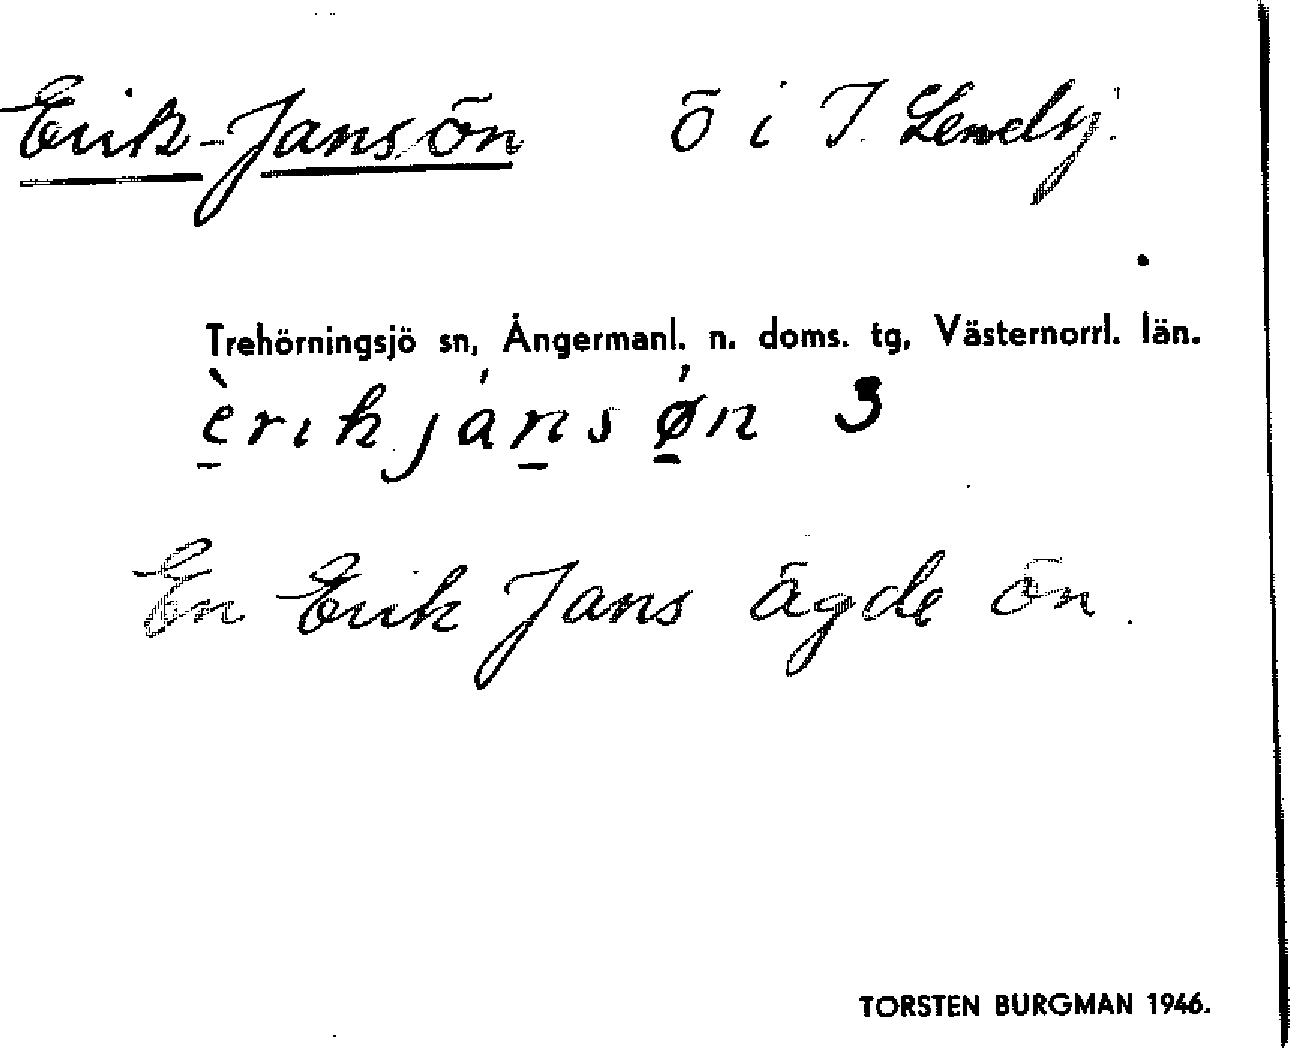 Erik-Jansön ö i T. Lemelsj.
Trehörningsjö sn, Ångermanl. n. doms. tg, Västernorrl. län.
èrikjánsǿn 3
En Erik Jans ägde ön.
TORSTEN BURGMAN 1946.